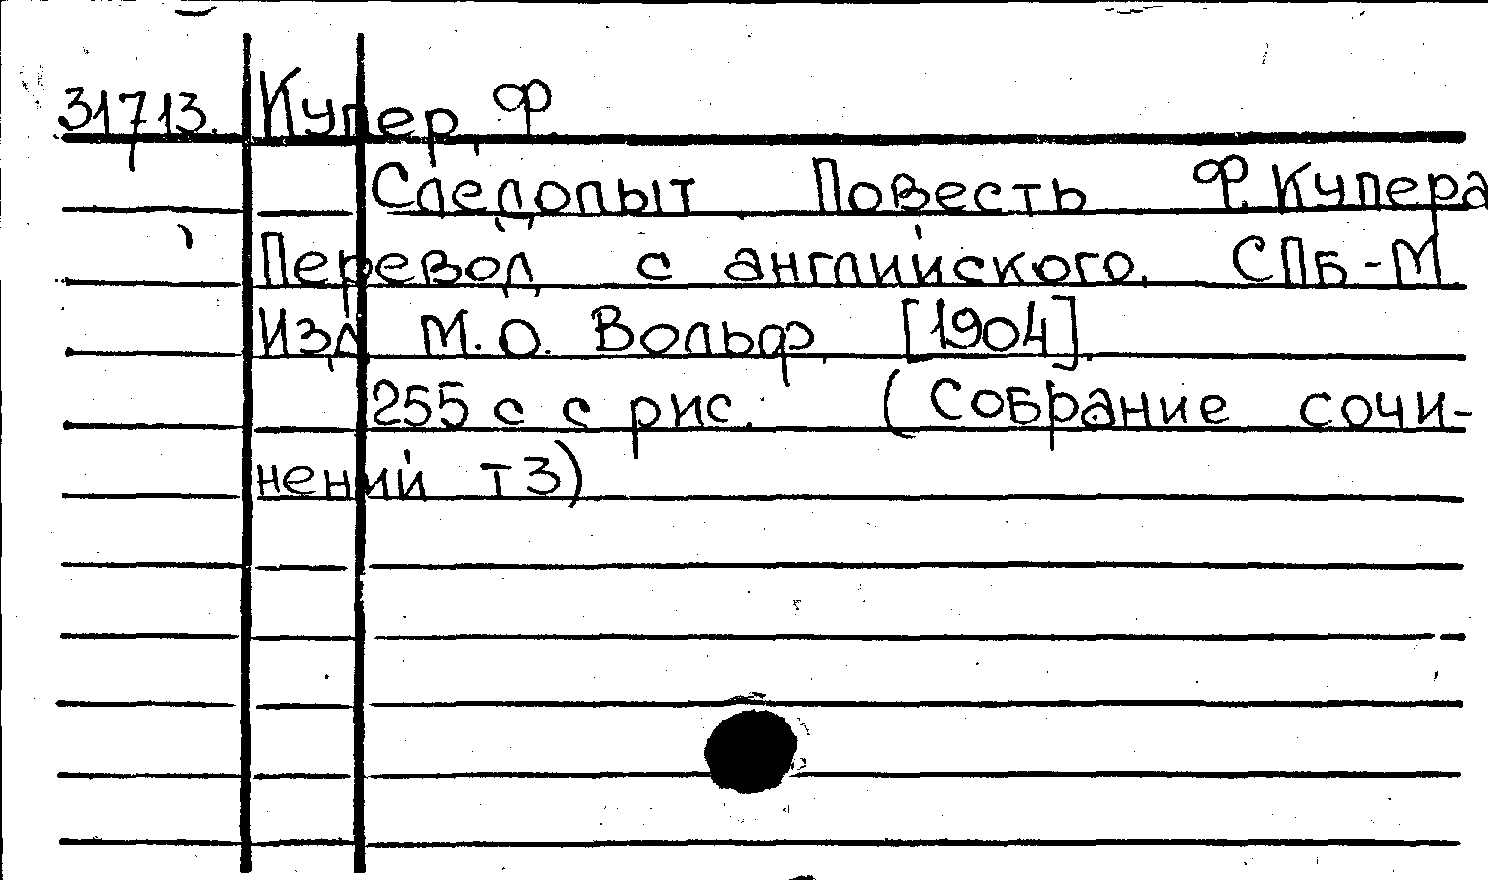 31713. Купер, Ф
Следопыт Повесть Ф. Купера
Перевод с английского. СПБ-М.
Изд. М.О. Вольф, [1904].
255 с с рис. (Собрание сочи-
нений т 3)